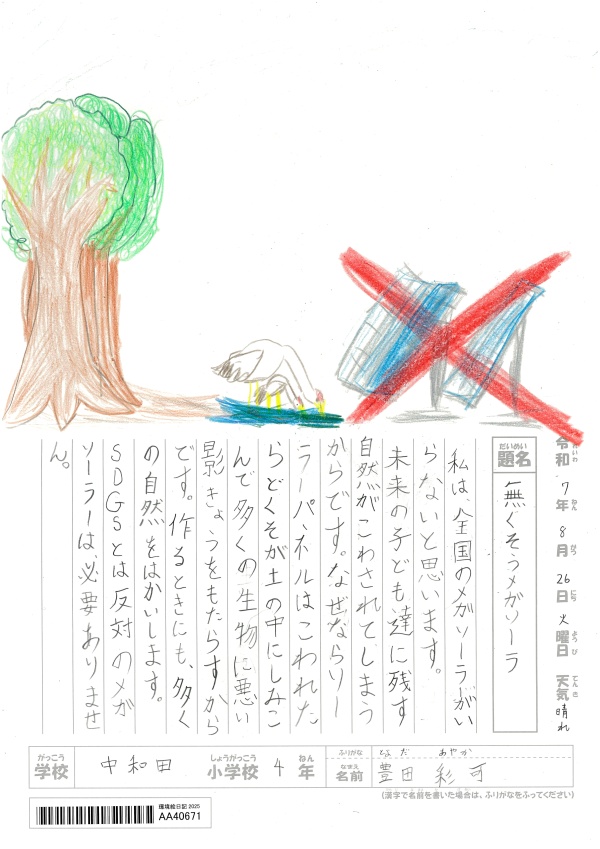 令和7年8月26日火曜日 天気 晴れ
れいわ ねん がつ にち ようび てんき
だいめい
題名 無くそうメガソーラ
私は、全国のメガソーラがい
らないと思います。
未来の子ども達に残す
自然がこわされてしまう
からです。なぜならソー
ラーパネルはこわれた
らどくそが土の中にしみこ
んで多くの生物に悪い
影きょうをもたらすから
です。作るときにも、多く
の自然をはかいします。
SDGSとは反対のメガ
ソーラーは、必要ありませ
ん。
がっこう しょうがっこう ねん
学校 中和田 小学校 4年
ふりがな とよだ あやか
なまえ
名前 豊田 彩可
(漢字で名前を書いた場合は、ふりがなをふってください)
環境絵日記 2025
AA40671